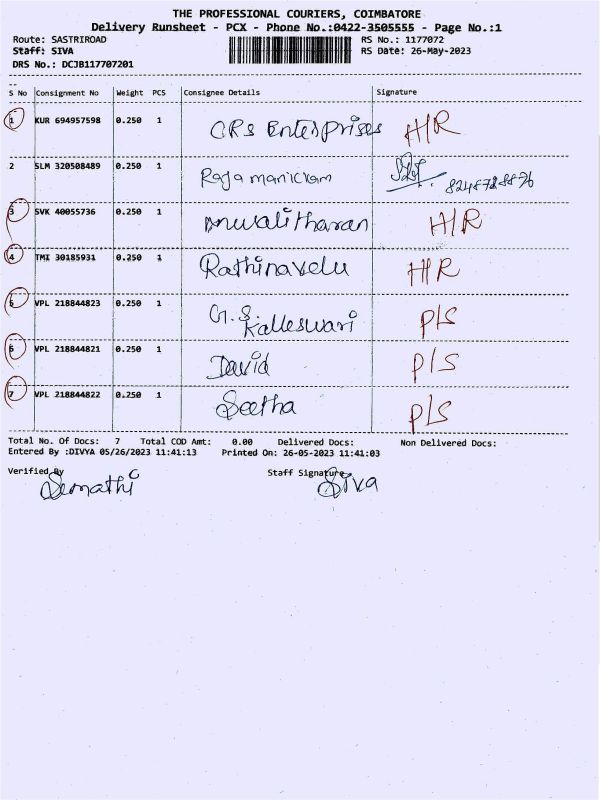 THE PROFESSIONAL COURIERS, COIMBATORE
Delivery Runsheet - PCX - Phone No.:0422-3505555 - Page No.:1
Route: SASTRIROAD RS No.: 1177072
Staff: SIVA RS Date: 26-May-2023
DRS No.: DCJB117707201
S No Consignment No Weight PCS Consignee Details Signature
1 KUR 694957598 0.250 1 CRS Enterprises H/R
2 SLM 320508489 0.250 1 Raja manickam
3 SVK 40055736 0.250 1 H/R
4 TMI 30185931 0.250 1 Rathinavelu H/R
5 VPL 218844823 0.250 1 G.S. Kalleswari P/S
6 VPL 218844821 0.250 1 David P/S
7 VPL 218844822 0.250 1 Seetha P/S
Total No. Of Docs: 7 Total COD Amt: 0.00 Delivered Docs: Non Delivered Docs:
Entered By :DIVYA 05/26/2023 11:41:13 Printed On: 26-05-2023 11:41:03
Verified By Staff Signature
Siva